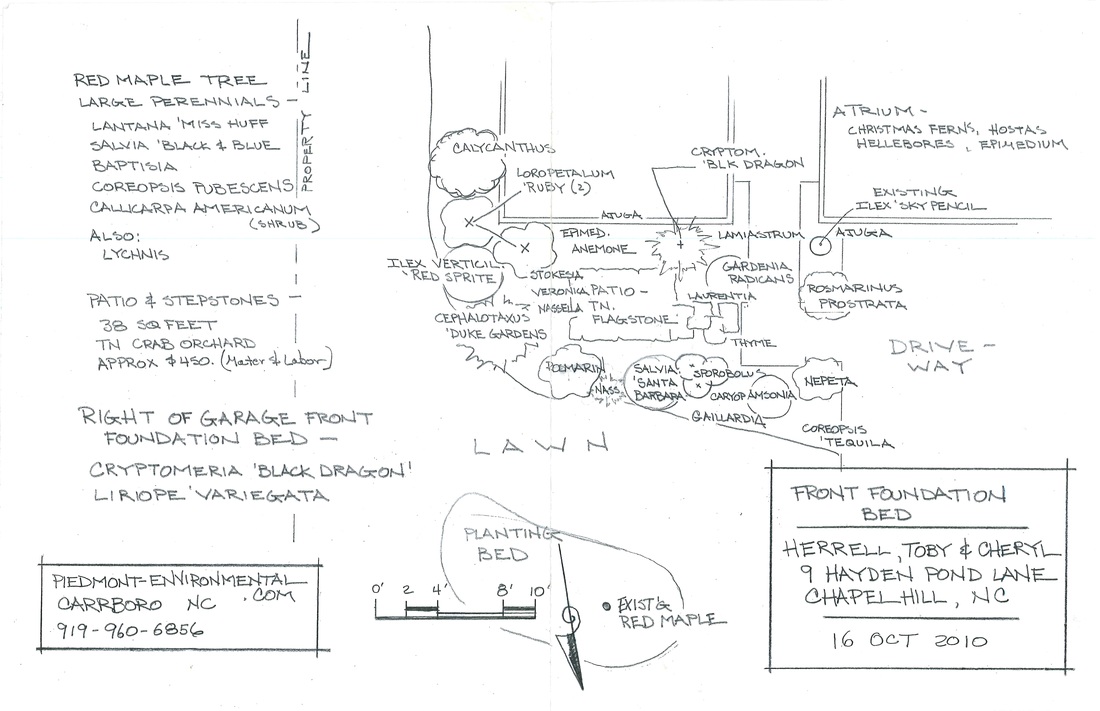 RED MAPLE TREE
LARGE PERENNIALS -
LANTANA 'MISS HUFF
SALVIA 'BLACK & BLUE
BAPTISIA
COREOPSIS PUBESCENS
CALLICARPA AMERICANUM
(SHRUB)
ALSO:
LYCHNIS
PROPERTY LINE
PATIO & STEPSTONES -
38 SQ FEET
TN CRAB ORCHARD
APPROX $450. (Mater & Labor)
RIGHT OF GARAGE FRONT
FOUNDATION BED -
CRYPTOMERIA 'BLACK DRAGON'
LIRIOPE 'VARIEGATA
PIEDMONT-ENVIRONMENTAL
.COM
CARRBORO NC
919-960-6856
CALYCANTHUS
LOROPETALUM
'RUBY (2)
CRYPTOM.
'BLK DRAGON
ATRIUM -
CHRISTMAS FERNS, HOSTAS
HELLEBORES, EPIMEDIUM
EXISTING
ILEX 'SKY PENCIL
AJUGA
EPIMED.
ANEMONE
LAMIASTRUM
AJUGA
ILEX VERTICIL.
'RED SPRITE
STOKESIA
GARDENIA
RADICANS
VERONICA
PATIO -
NASSELA
TN.
FLAGSTONE
LAURENTIA
ROSMARINUS
PROSTRATA
CEPHALOTAXUS
'DUKE GARDENS
THYME
DRIVE-
WAY
ROSMARIN
NASS.
SALVIA
'SANTA
BARBARA
SPOROBOLUS
CARYOP
AMSONIA
NEPETA
GAILLARDIA
COREOPSIS
'TEQUILA
LAWN
PLANTING
BED
0' 2 4' 8' 10'
EXIST'G
RED MAPLE
FRONT FOUNDATION
BED
HERRELL, TOBY & CHERYL
9 HAYDEN POND LANE
CHAPEL HILL, NC
16 OCT 2010